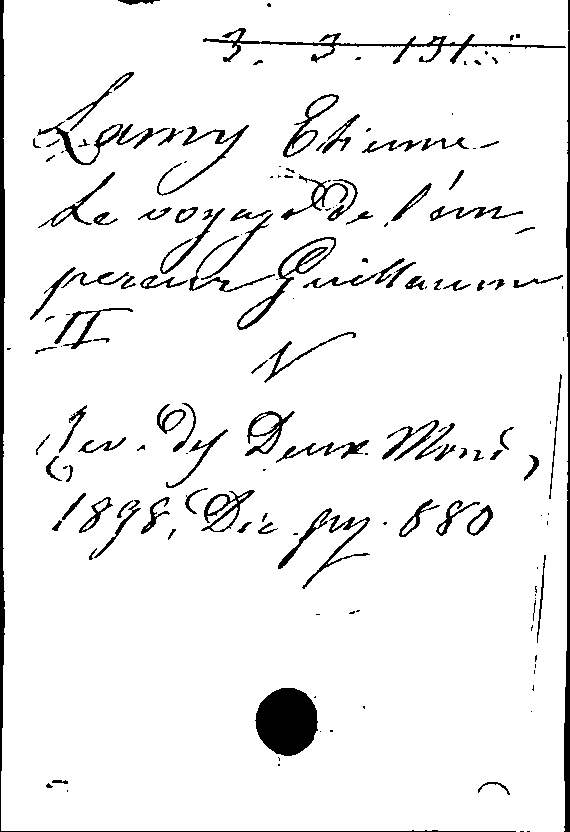 3. 3. 131
Lamy Etienne
Le voyage de l'em,
pereur Guillaume
II
V
Rev. des Deux Mond,
1898, Dic. pag. 880